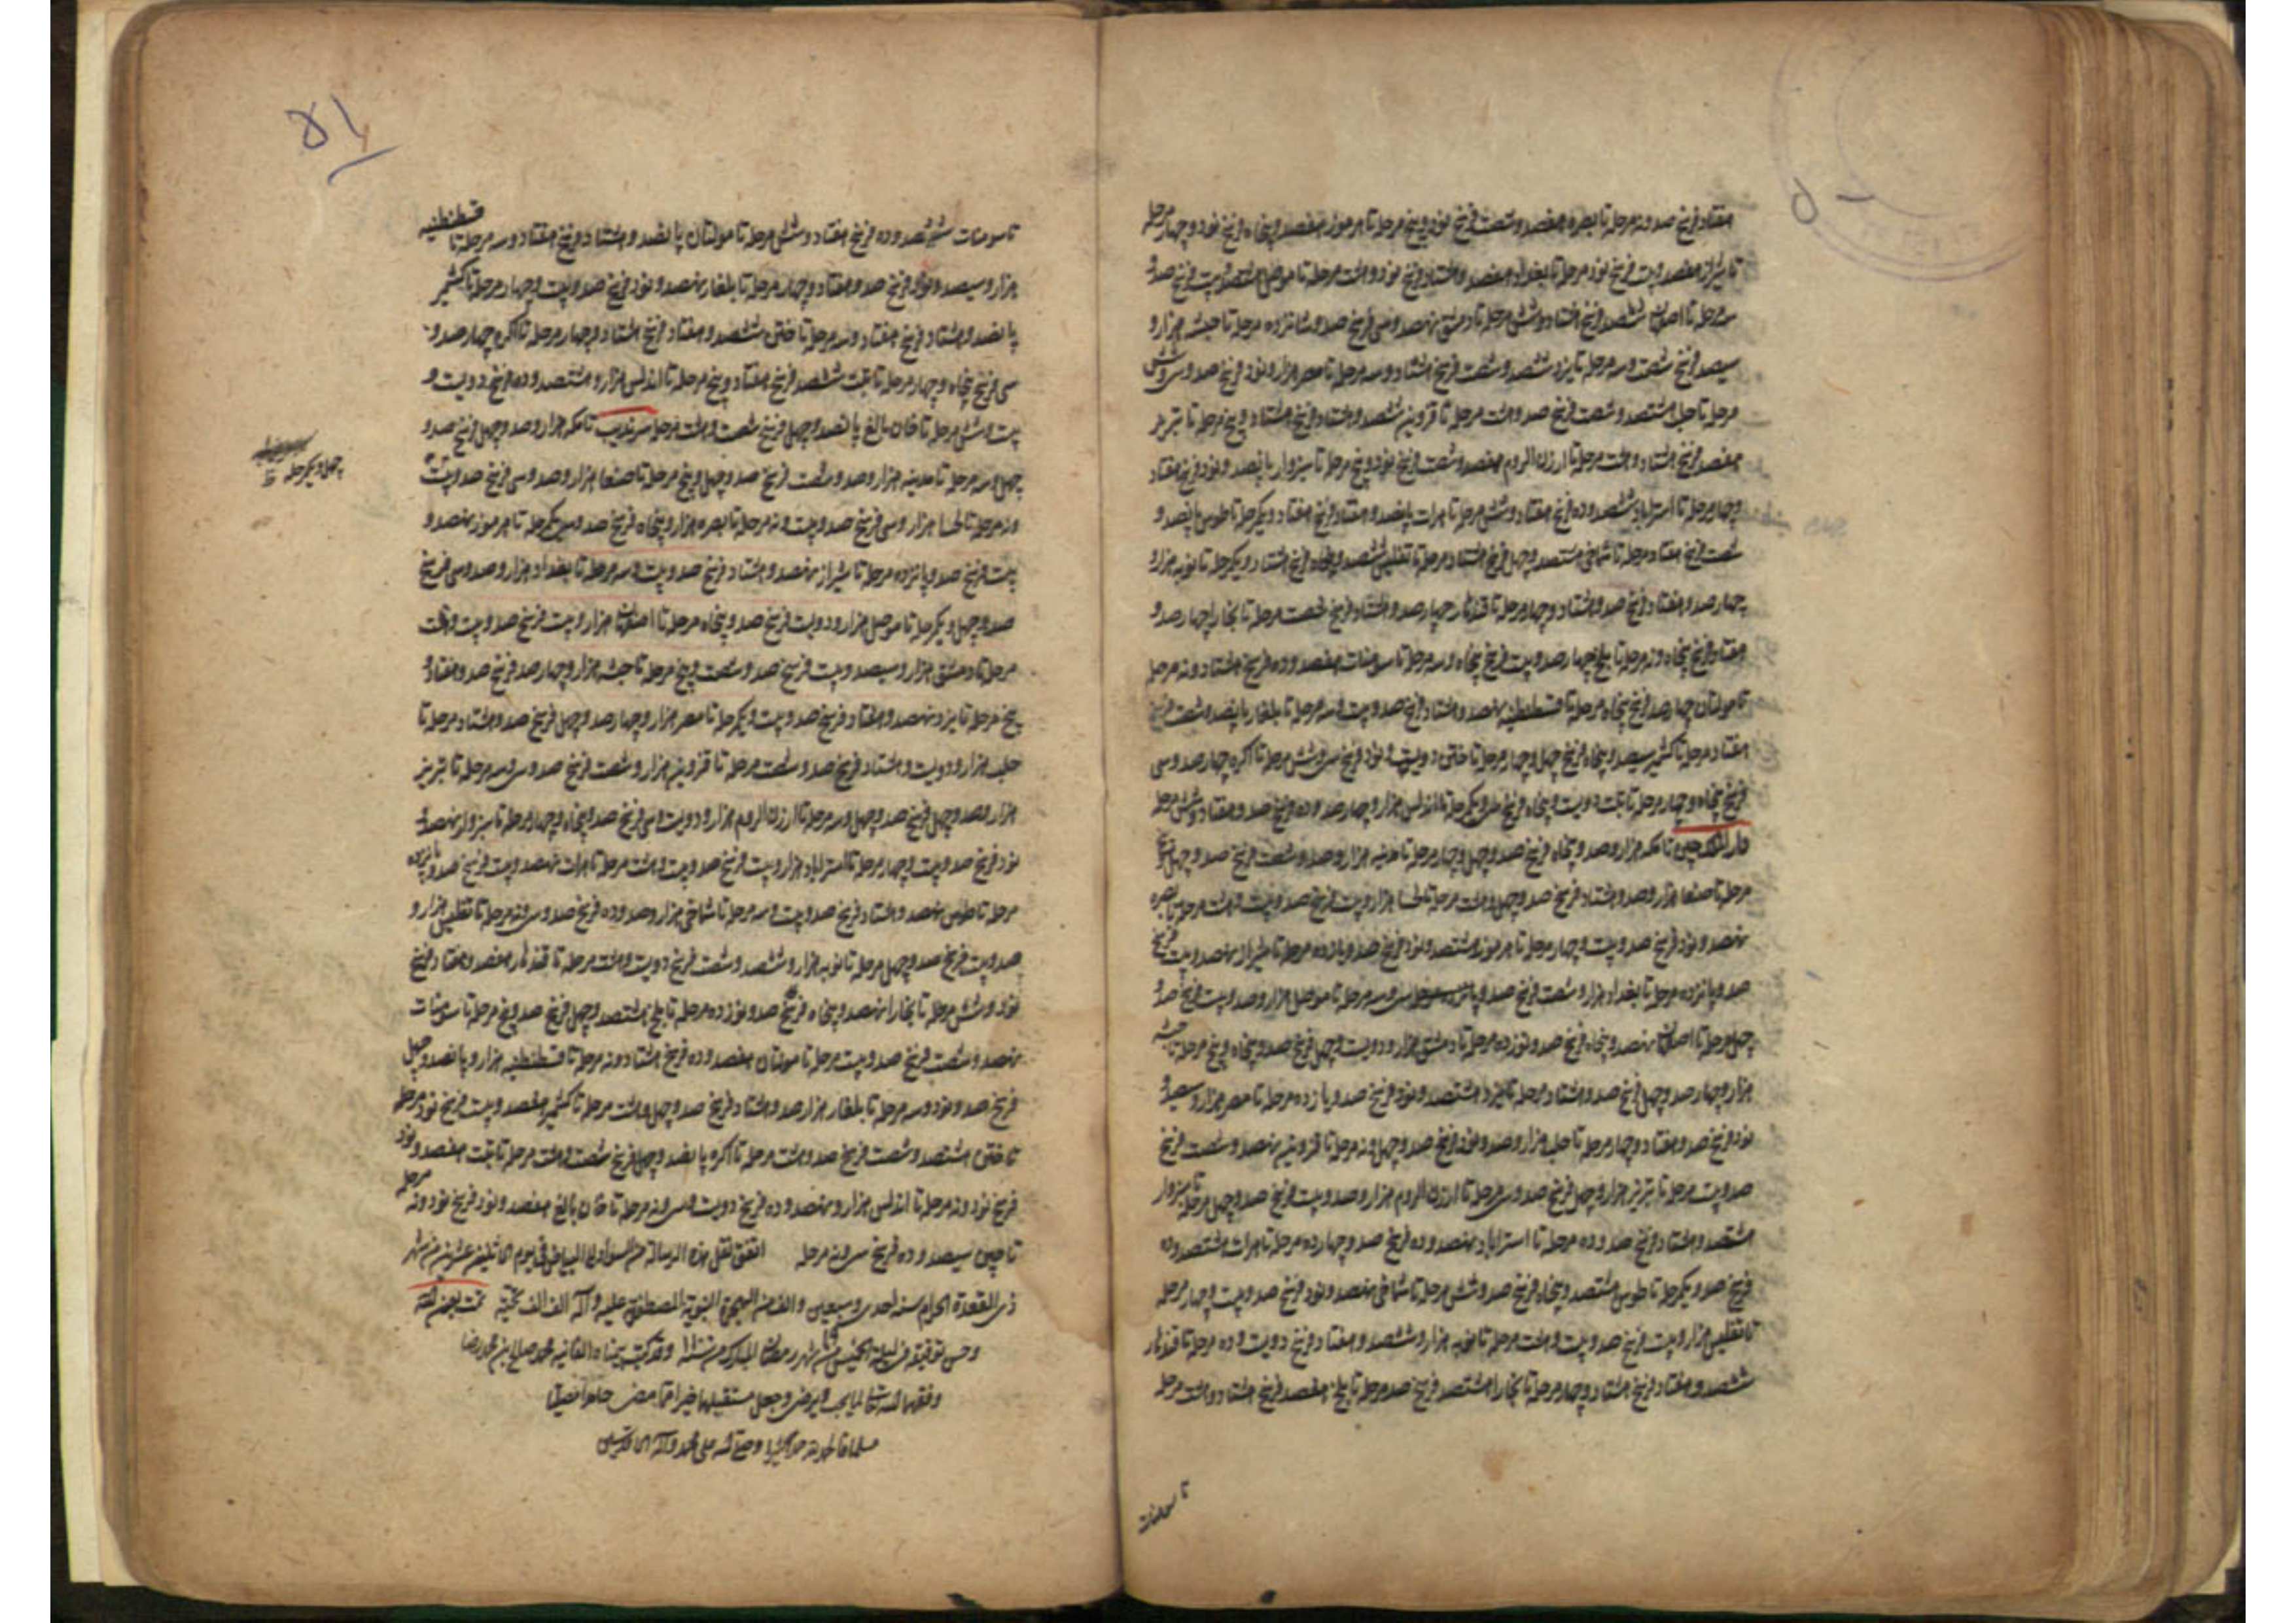 هفتاد فرسخ صد و نه مرحله تا بصره هفصد و شصت فرسخ نود و پنج مرحله تا هرموز هفصد و پنجاه فرسخ نود و چهار مرحله
تا شیراز هفصد و بیست فرسخ نود مرحله تا بغداد هفصد و هشتاد فرسخ نود و هشت مرحله تا موصل هشتصد و بیست فرسخ صد و
سه مرحله تا اصفهان ششصد فرسخ هفتاد و شش مرحله تا دمشق نهصد و سی فرسخ صد و شانزده مرحله تا حبشه هزار و
سیصد فرسخ شصت و سه مرحله تا یزد ششصد و شصت فرسخ هشتاد و سه مرحله تا مصر هزار و نود فرسخ صد و سی و شش
مرحله تا حلب هشتصد و شصت فرسخ صد و هشت مرحله تا قزوین ششصد و هشتاد فرسخ هشتاد و پنج مرحله تا تبریز
هفصد فرسخ هشتاد و هشت مرحله تا ارزن الروم هفصد و شصت فرسخ نود و پنج مرحله تا سبزوار پانصد و نود فرسخ هفتاد
و چهار مرحله تا استراباد ششصد و ده فرسخ هفتاد و شش مرحله تا هرات پانصد و هفتاد فرسخ هفتاد و یکمرحله تا طوس پانصد و
شصت فرسخ هفتاد مرحله تا شماخی هشتصد و چهل فرسخ هشتاد مرحله تا تفلیس ششصد و پنجاه فرسخ هشتاد و یکمرحله تا نوبه هزار و
چهار صد و هفتاد فرسخ صد و هشتاد و چهار مرحله تا قندهار چهار صد و هشتاد فرسخ شصت مرحله تا بخارا چهار صد و
هفتاد فرسخ پنجاه و نه مرحله تا بلخ چهار صد و بیست فرسخ پنجاه و سه مرحله تا سومنات هفصد و ده فرسخ هشتاد و نه مرحله
تا مولتان چهار صد فرسخ پنجاه مرحله تا قسطنطنیه نهصد و هشتاد فرسخ صد و بیست و سه مرحله تا بلغار پانصد و شصت فرسخ
هفتاد مرحله تا کشمیر سیصد و پنجاه فرسخ چهل و چهار مرحله تا ختن دویست و نود فرسخ سی و شش مرحله تا اکره چهار صد و سی
فرسخ پنجاه و چهار مرحله تا تبت دویست و پنجاه فرسخ سی و یکمرحله تا اندلس هزار و چهار صد و ده فرسخ صد و هفتاد و شش مرحله
دار الملک چین تا مکه هزار و صد و پنجاه فرسخ صد و چهل و چهار مرحله تا مدینه هزار و صد و شصت فرسخ صد و چهل و پنج
مرحله تا صنعا هزار و صد و هشتاد فرسخ صد و چهل و هشت مرحله تا لحسا هزار و بیست فرسخ صد و بیست و هشت مرحله تا بصره
نهصد و نود فرسخ صد و بیست و چهار مرحله تا هرموز هشتصد و نود فرسخ صد و یازده مرحله تا شیراز نهصد و بیست فرسخ
صد و پانزده مرحله تا بغداد هزار و شصت فرسخ صد و سی و سه مرحله تا موصل هزار و صد و بیست فرسخ صد و
چهل مرحله تا اصفهان نهصد و پنجاه فرسخ صد و نوزده مرحله تا دمشق هزار و دویست و چهل فرسخ صد و پنجاه و پنج مرحله تا حبشه
هزار و چهار صد و چهل فرسخ صد و هشتاد مرحله تا یزد هشتصد و نود فرسخ صد و یازده مرحله تا مصر هزار و سیصد و
نود فرسخ صد و هفتاد و چهار مرحله تا حلب هزار و صد و نود فرسخ صد و چهل و نه مرحله تا قزوین نهصد و شصت فرسخ
صد و بیست مرحله تا تبریز هزار و چهل فرسخ صد و سی مرحله تا ارزن الروم هزار و صد و بیست فرسخ صد و چهل مرحله تا سبزوار
هشتصد و هشتاد فرسخ صد و ده مرحله تا استراباد نهصد و ده فرسخ صد و چهارده مرحله تا هرات هشتصد و ده
فرسخ صد و یکمرحله تا طوس هشتصد و پنجاه فرسخ صد و شش مرحله تا شماخی نهصد و نود فرسخ صد و بیست و چهار مرحله
تا تفلیس هزار و بیست فرسخ صد و بیست و هشت مرحله تا نوبه هزار و ششصد و هفتاد فرسخ دویست و ده مرحله تا قندهار
ششصد و هفتاد فرسخ هشتاد و چهار مرحله تا بخارا هشتصد فرسخ صد مرحله تا بلخ هفصد فرسخ هشتاد و هشت مرحله
تا سومنات
۵۱
تا سومنات ششصد و ده فرسخ هفتاد و شش مرحله تا مولتان پانصد و هشتاد فرسخ هفتاد و سه مرحله تا قسطنطنیه
هزار و سیصد و نود فرسخ صد و هفتاد و چهار مرحله تا بلغار نهصد و نود فرسخ صد و بیست و چهار مرحله تا کشمیر
پانصد و هشتاد فرسخ هفتاد و سه مرحله تا ختن ششصد و هفتاد فرسخ هشتاد و چهار مرحله تا اکره چهار صد و
سی فرسخ پنجاه و چهار مرحله تا تبت ششصد فرسخ هفتاد و پنج مرحله تا اندلس هزار و هشتصد و ده فرسخ دویست و
بیست و شش مرحله تا خان بالغ پانصد و چهل فرسخ شصت و هشت مرحله سرندیب تا مکه هزار و صد و چهل فرسخ صد و
چهل و سه مرحله تا مدینه هزار و صد و شصت فرسخ صد و چهل و پنج مرحله تا صنعا هزار و صد و سی فرسخ صد و بیست
چهل و یکمرحله ظ
و نه مرحله تا لحسا هزار و سی فرسخ صد و بیست و نه مرحله تا بصره هزار و پنجاه فرسخ صد و سی یکمرحله تا هرموز نهصد و
بیست فرسخ صد و پانزده مرحله تا شیراز نهصد و هشتاد فرسخ صد و بیست و سه مرحله تا بغداد هزار و صد و سی فرسخ
صد و چهل و یکمرحله تا موصل هزار و دویست فرسخ صد و پنجاه مرحله تا اصفهان هزار و بیست فرسخ صد و بیست و هشت
مرحله تا دمشق هزار و سیصد و بیست فرسخ صد و شصت و پنج مرحله تا حبشه هزار و چهار صد فرسخ صد و هفتاد و
پنج مرحله تا یزد نهصد و هفتاد فرسخ صد و بیست و یکمرحله تا مصر هزار و چهار صد و چهل فرسخ صد و هشتاد مرحله تا
حلب هزار و دویست و هشتاد فرسخ صد و شصت مرحله تا قزوین هزار و شصت فرسخ صد و سی و سه مرحله تا تبریز
هزار و صد و چهل فرسخ صد و چهل و سه مرحله تا ارزن الروم هزار و دویست و سی فرسخ صد و پنجاه و چهار مرحله تا سبزوار نهصد و
نود فرسخ صد و بیست و چهار مرحله تا استراباد هزار و بیست فرسخ صد و بیست و هشت مرحله تا هرات نهصد و بیست فرسخ صد و پانزده
مرحله تا طوس نهصد و هشتاد فرسخ صد و بیست و سه مرحله تا شماخی هزار و صد و ده فرسخ صد و سی و نه مرحله تا تفلیس هزار و
صد و بیست فرسخ صد و چهل مرحله تا نوبه هزار و ششصد و شصت فرسخ دویست و هشت مرحله تا قندهار هفصد و هفتاد فرسخ
نود و شش مرحله تا بخارا نهصد و پنجاه فرسخ صد و نوزده مرحله تا بلخ هشتصد و چهل فرسخ صد و پنج مرحله تا سومنات
نهصد و شصت فرسخ صد و بیست مرحله تا مولتان هفصد و ده فرسخ هشتاد و نه مرحله تا قسطنطنیه هزار و پانصد و چهل
فرسخ صد و نود و سه مرحله تا بلغار هزار صد و هشتاد فرسخ صد و چهل و هشت مرحله تا کشمیر هفصد و بیست فرسخ نود مرحله
تا ختن هشتصد و شصت فرسخ صد و هشت مرحله تا اکره پانصد و چهل فرسخ شصت و هشت مرحله تا تبت هفصد و نود
فرسخ نود و نه مرحله تا اندلس هزار و نهصد و ده فرسخ دویست و سی و نه مرحله تا خان بالغ هفصد و نود فرسخ نود و نه مرحله
تا چین سیصد و ده فرسخ سی و نه مرحله اتفق نقل هذه الرسالة من السواد الی البیاض فی یوم الاثنین عشرین من شهر
ذی القعدة الحرام سنه احدی و سبعین و الف من الهجرة النبویة المصطفویة علیه و آله الف الف تحیة تمت بعون الله
و حسن توفیقه فی لیلة الخمیس من شهر رمضان المبارک و قد کتب بیمناه الفانیة محمد صالح بن محمد رضا
وفقهما الله تعالی لما یحب و یرضی و جعل مستقبلهما خیرا مما مضی حامدا مصلیا
مسلما فالحمد لله حمدا کثیرا و صلی الله علی محمد و آله